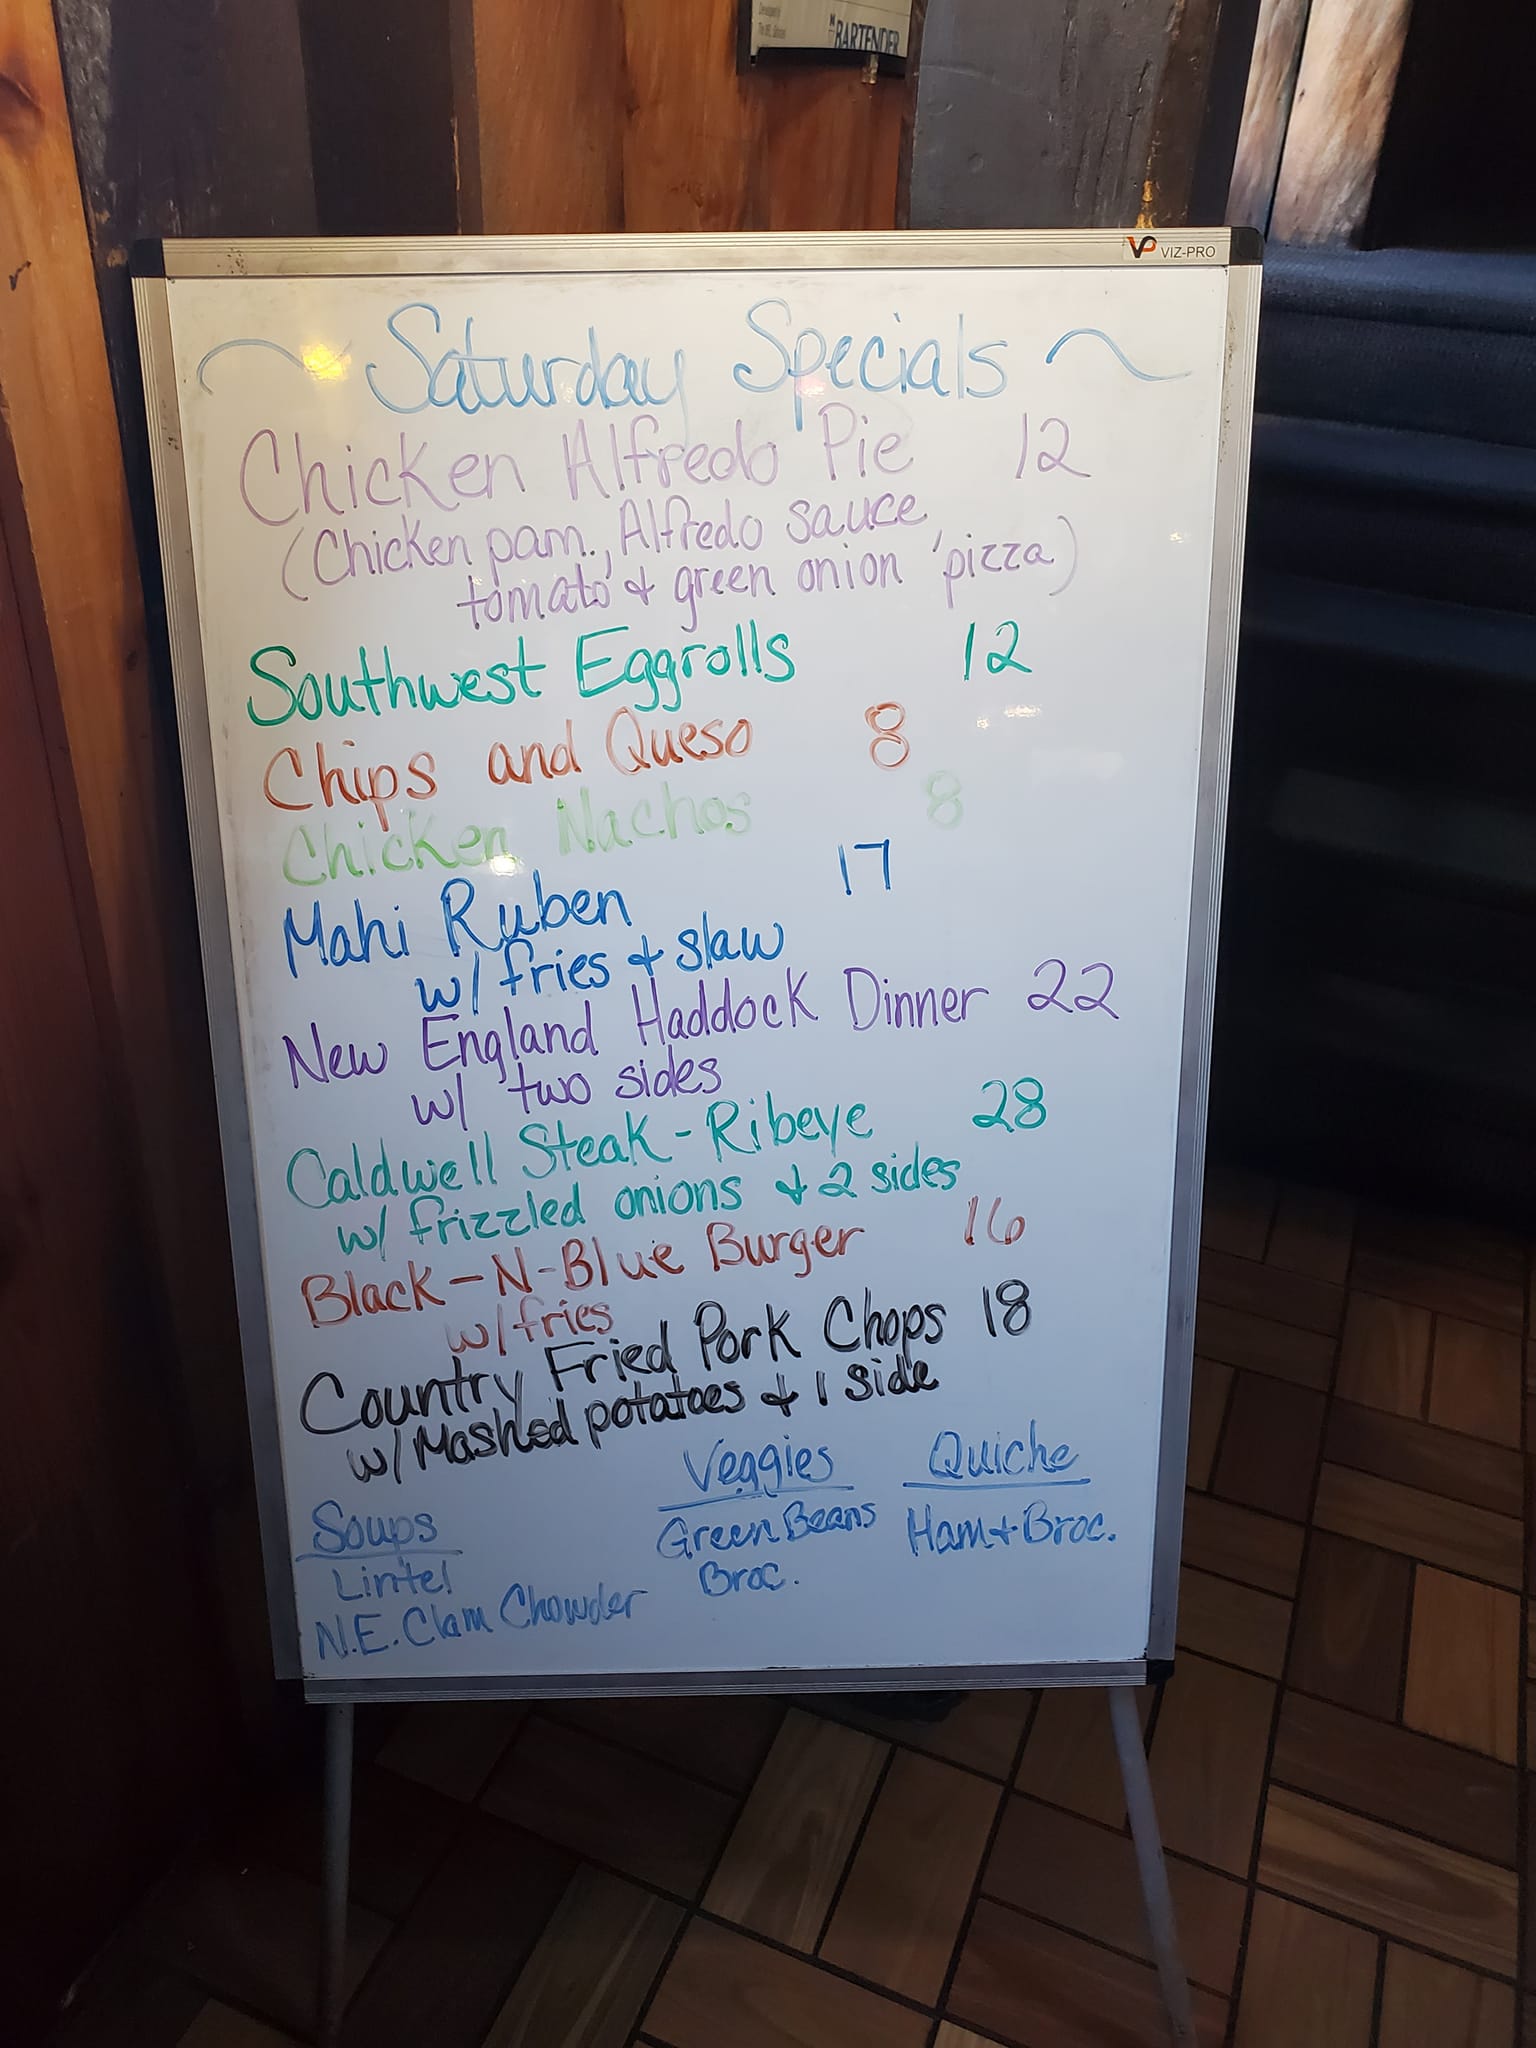 BARTENDER
VP VIZ-PRO
~ Saturday Specials ~
Chicken Alfredo Pie 12
(Chicken parm., Alfredo sauce,
tomato & green onion 'pizza)
Southwest Eggrolls 12
Chips and Queso 8
Chicken Nachos 8
Mahi Ruben 17
w/ fries & slaw
New England Haddock Dinner 22
w/ two sides
Caldwell Steak - Ribeye 28
w/ frizzled onions & 2 sides
Black-N-Blue Burger 16
w/ fries
Country Fried Pork Chops 18
w/ Mashed potatoes & 1 side
Soups
Lintel
N.E. Clam Chowder
Veggies
Green Beans
Broc.
Quiche
Ham + Broc.